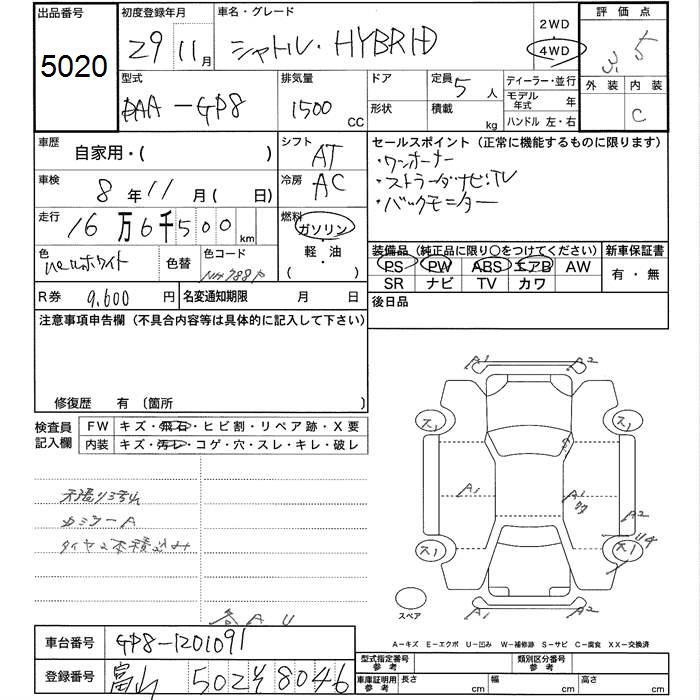 出品番号 初度登録年月 車名・グレード 2WD 評価点
5020 29 11月 シャトル・HYBRID 4WD 3.5
型式 排気量 ドア 定員 5人 ディーラー・並行 外装 内装
DAA-GP8 1500 CC 形状 積載 kg モデル年式 年 C
ハンドル 左・右
車歴 自家用・( ) シフト AT セールスポイント(正常に機能するものに限ります)
・ワンオーナー
車検 8年11月( 日) 冷房 AC ・ストラーダナビ:TV
・バックモニター
走行 16万6千500km 燃料 ガソリン
軽・油
( )
色 ホワイト 色替 色コード NH788P 装備品(純正品に限り〇をつけてください) 新車保証書
PS PW ABS エアB AW 有・無
SR ナビ TV カワ
R券 9,600円 名変通知期限 月 日 後日品
注意事項申告欄(不具合内容等は具体的に記入して下さい)
修復歴 有(箇所 )
検査員記入欄 FW キズ・飛石・ヒビ割・リペア跡・X要
内装 キズ・汚レ・コゲ・穴・スレ・キレ・破レ
A1 A2
ス1 ス1
A1 A1
A2
ス1 ス1
A1 A2
カミラーA
タイヤ2本積込み
スペア
A U
A-キズ E-エクボ U-凹み W-補修跡 S-サビ C-腐食 XX-交換済
車台番号 GP8-1201091
登録番号 富山 502 8046
型式指定番号 参考 類別区分番号 参考
車庫証明用 参考 長さ cm 幅 cm 高さ cm